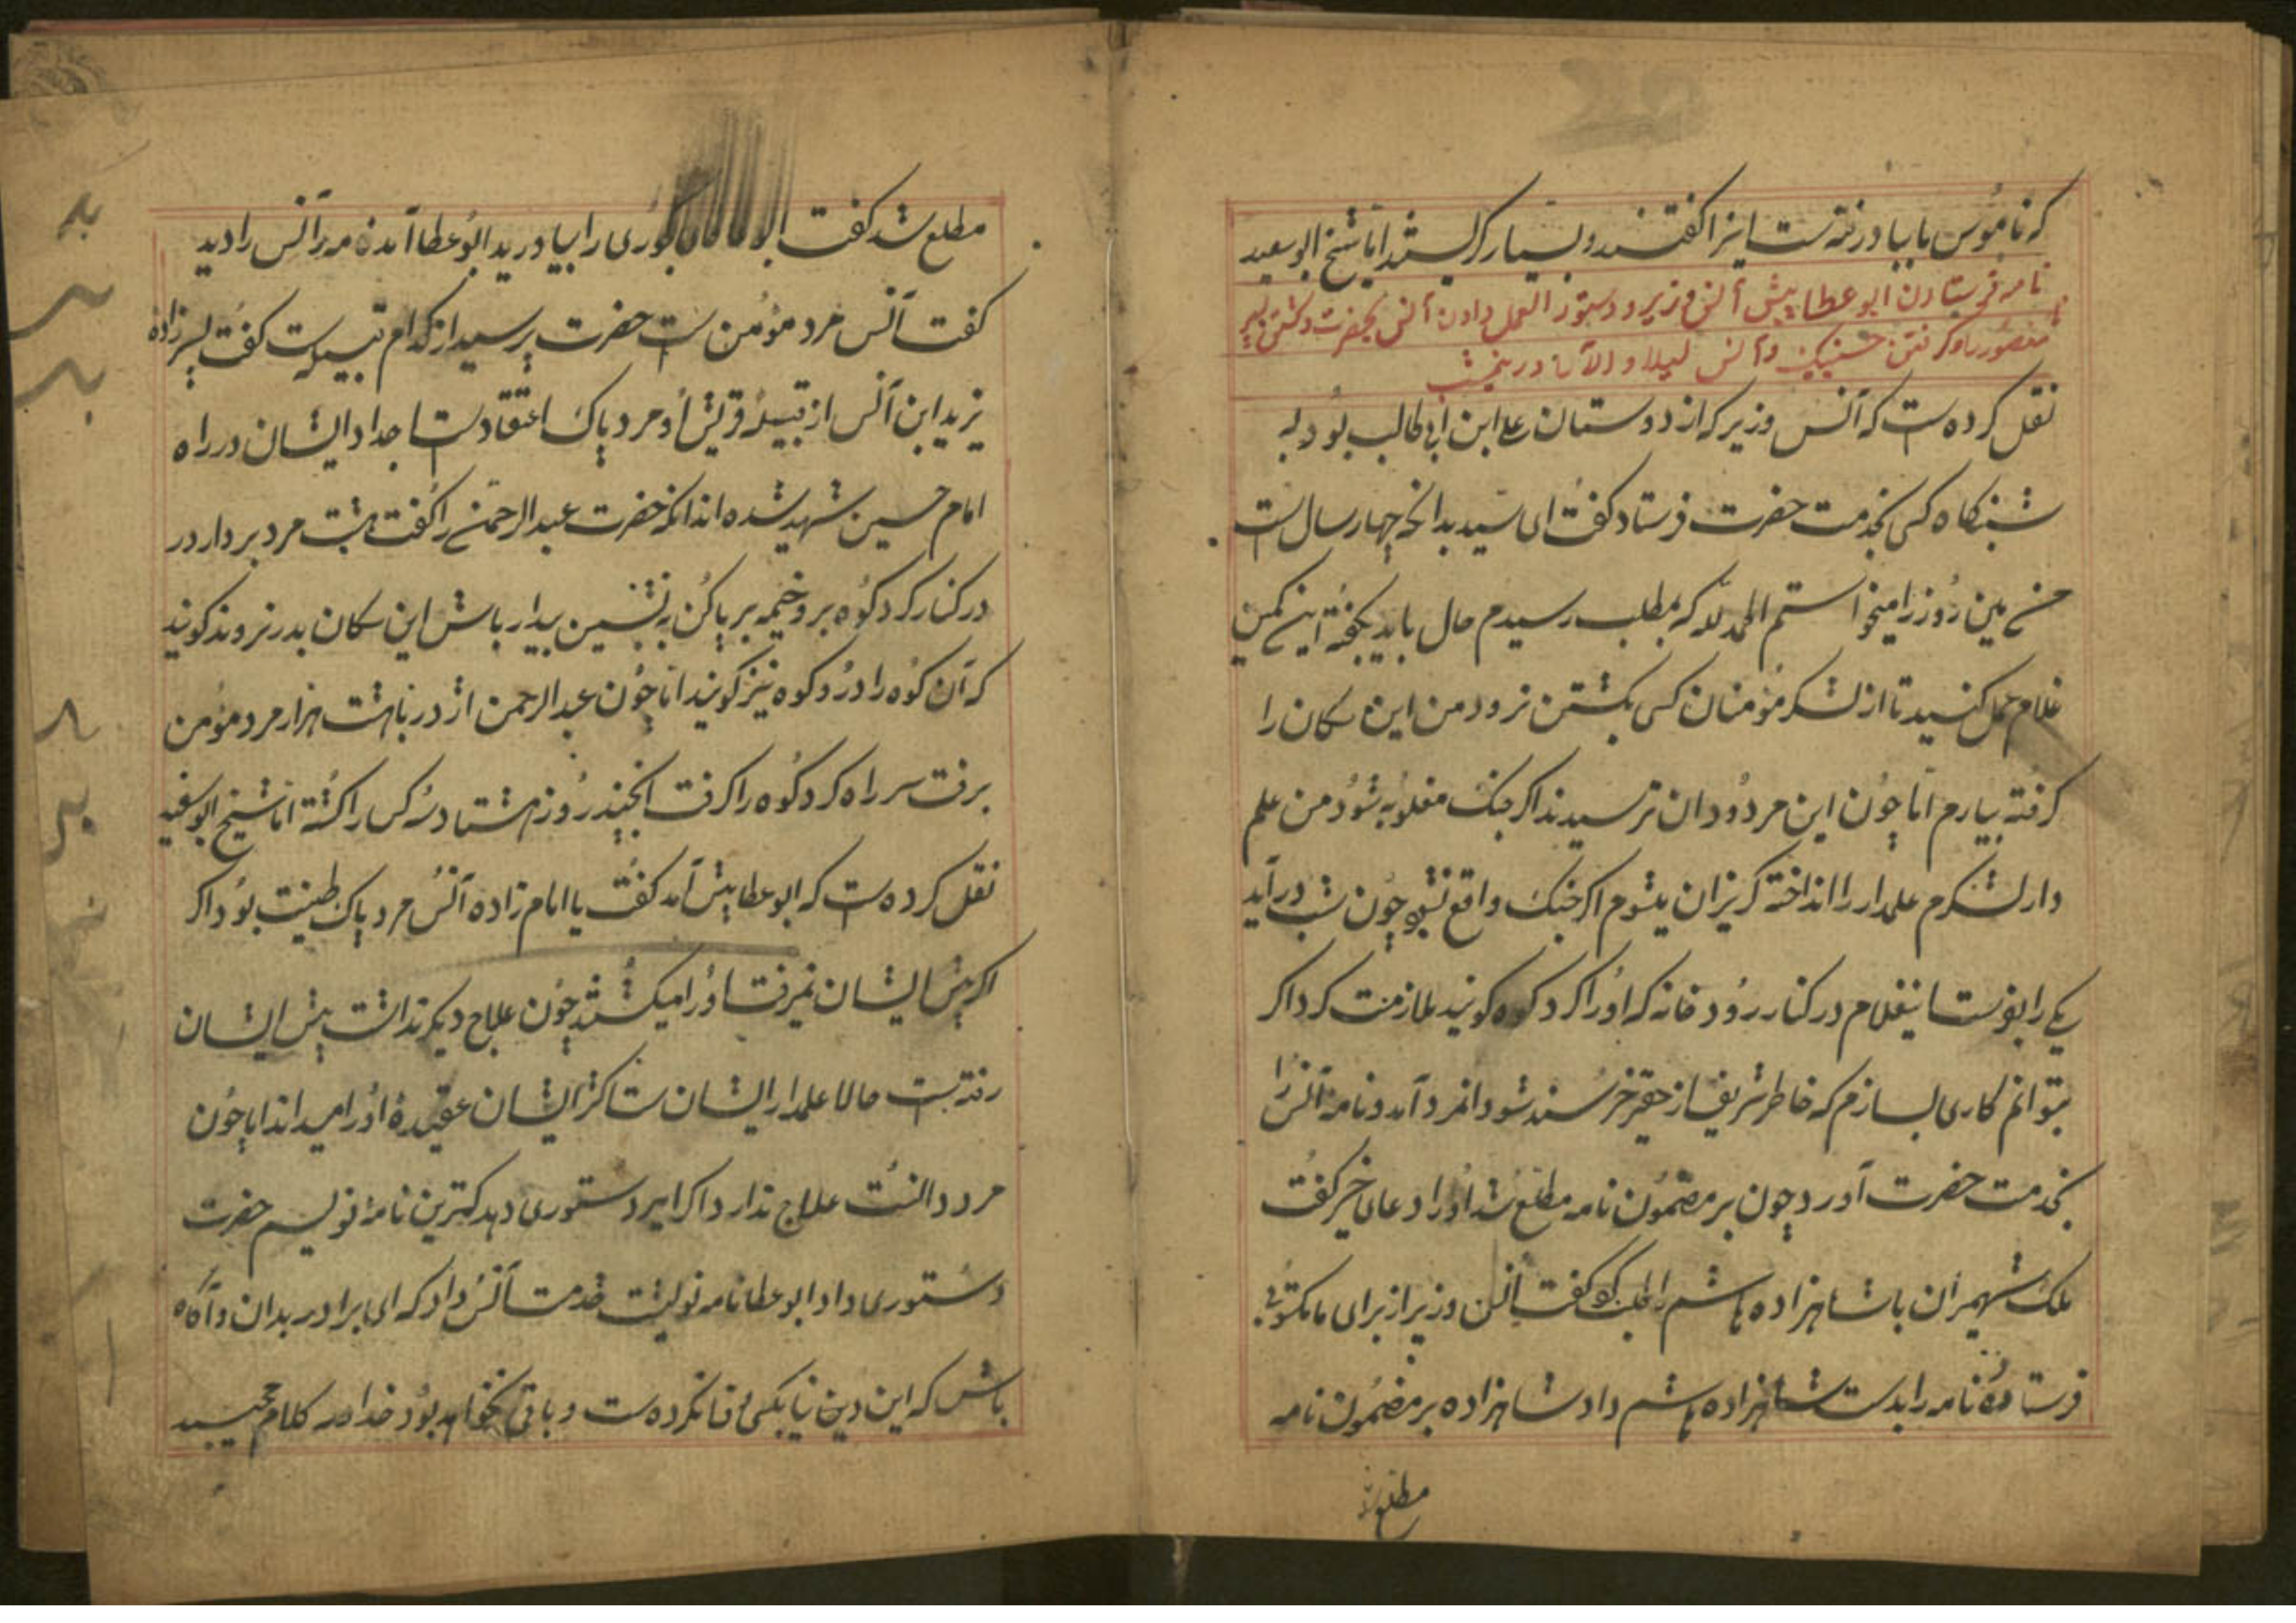 که ناموس ما بباد رفته است اینرا گفتند و بسیار گریستند اما شیخ ابو سعید
نامه فرستادن ابو عطا پیش آنس وزیر و دستور العمل دادن آنس بحضرت و کشتن
و گرفتن و آنس لیلا و الآن در
نقل کرده است که آنس وزیر که از دوستان علی ابن ابی طالب بود به
شبنکاه کسی بخدمت حضرت فرستاد گفت ای سید بدانکه چهار سال است
من همین روز را میخواستم الحمد لله که بمطلب رسیدم حال باید بگفته این کمین
غلام عمل کنید تا از لشکر مؤمنان کسی بکشتن نرود من این سکان را
گرفته بیارم اما چون این مردودان ترسیدند اگر جنک مغلوبه شود من علم
دار لشکرم علمدار را انداخته گریزان میشوم اگر جنک واقع نشود چون شب درآید
یکی را بفرستا بنغلام در کنار رودخانه که او را کرد کوه گویند ملازمت کرد اگر
بتوانم کاری بسازم که خاطر شریف از حقیر خرسند شود انمرد آمد و نامه آنس را
بخدمت حضرت آورد چون بر مضمون نامه مطلع شد او را دعای خیر گفت
ملک شهمران با شاهزاده هاشم را طلب کو گفت آنس وزیر از برای ما مکتوبی
فرستاده نامه را بدست شاهزاده هاشم داد شاهزاده بر مضمون نامه
مطلع شد
مطلع شد گفت را بیاورید ابو عطا آمده مهر آنس را دید
گفت آنس مرد مؤمن است حضرت پرسید از کدام قبیله است گفت پسرزاده
یزید ابن آنس از قبیله قریش و مرد پاک اعتقاد است اجداد ایشان در راه
امام حسین شهید شده اند انکه حضرت عبد الرحمن را گفت هشت مرد بردار در
در کنار کرد کوه برو خیمه بر پا کن بنشین بیدار باش این سکان بدر نروند گویند
که آن کوه را درود کوه نیز گویند اما چون عبد الرحمن اژدر با هشت هزار مرد مؤمن
برفت سر راه کرد کوه را گرفت انچند روز هشتاد کس را کشته اما شیخ ابو سعید
نقل کرده است که ابو عطا پیش آمد گفت یا امام زاده آنس مرد پاک طینت بود اگر
اگر پیش ایشان نمیرفت او را میکشتند چون علاج دیگر نداشت پیش ایشان
رفته است حالا علمدار ایشان است اکثر ایشان عقیدهٔ او را میدانند اما چون
مرد دانست علاج ندارد اگر امیر دستوری دهد کمترین نامه نویسم حضرت
دستوری داد ابو عطا نامه نوشت خدمت آنس داد که ای برادر بدان و آگاه
باش که این دین دنیا بکسی وفا نکرده است و باقی نخواهد بود خدا در کلام مجید